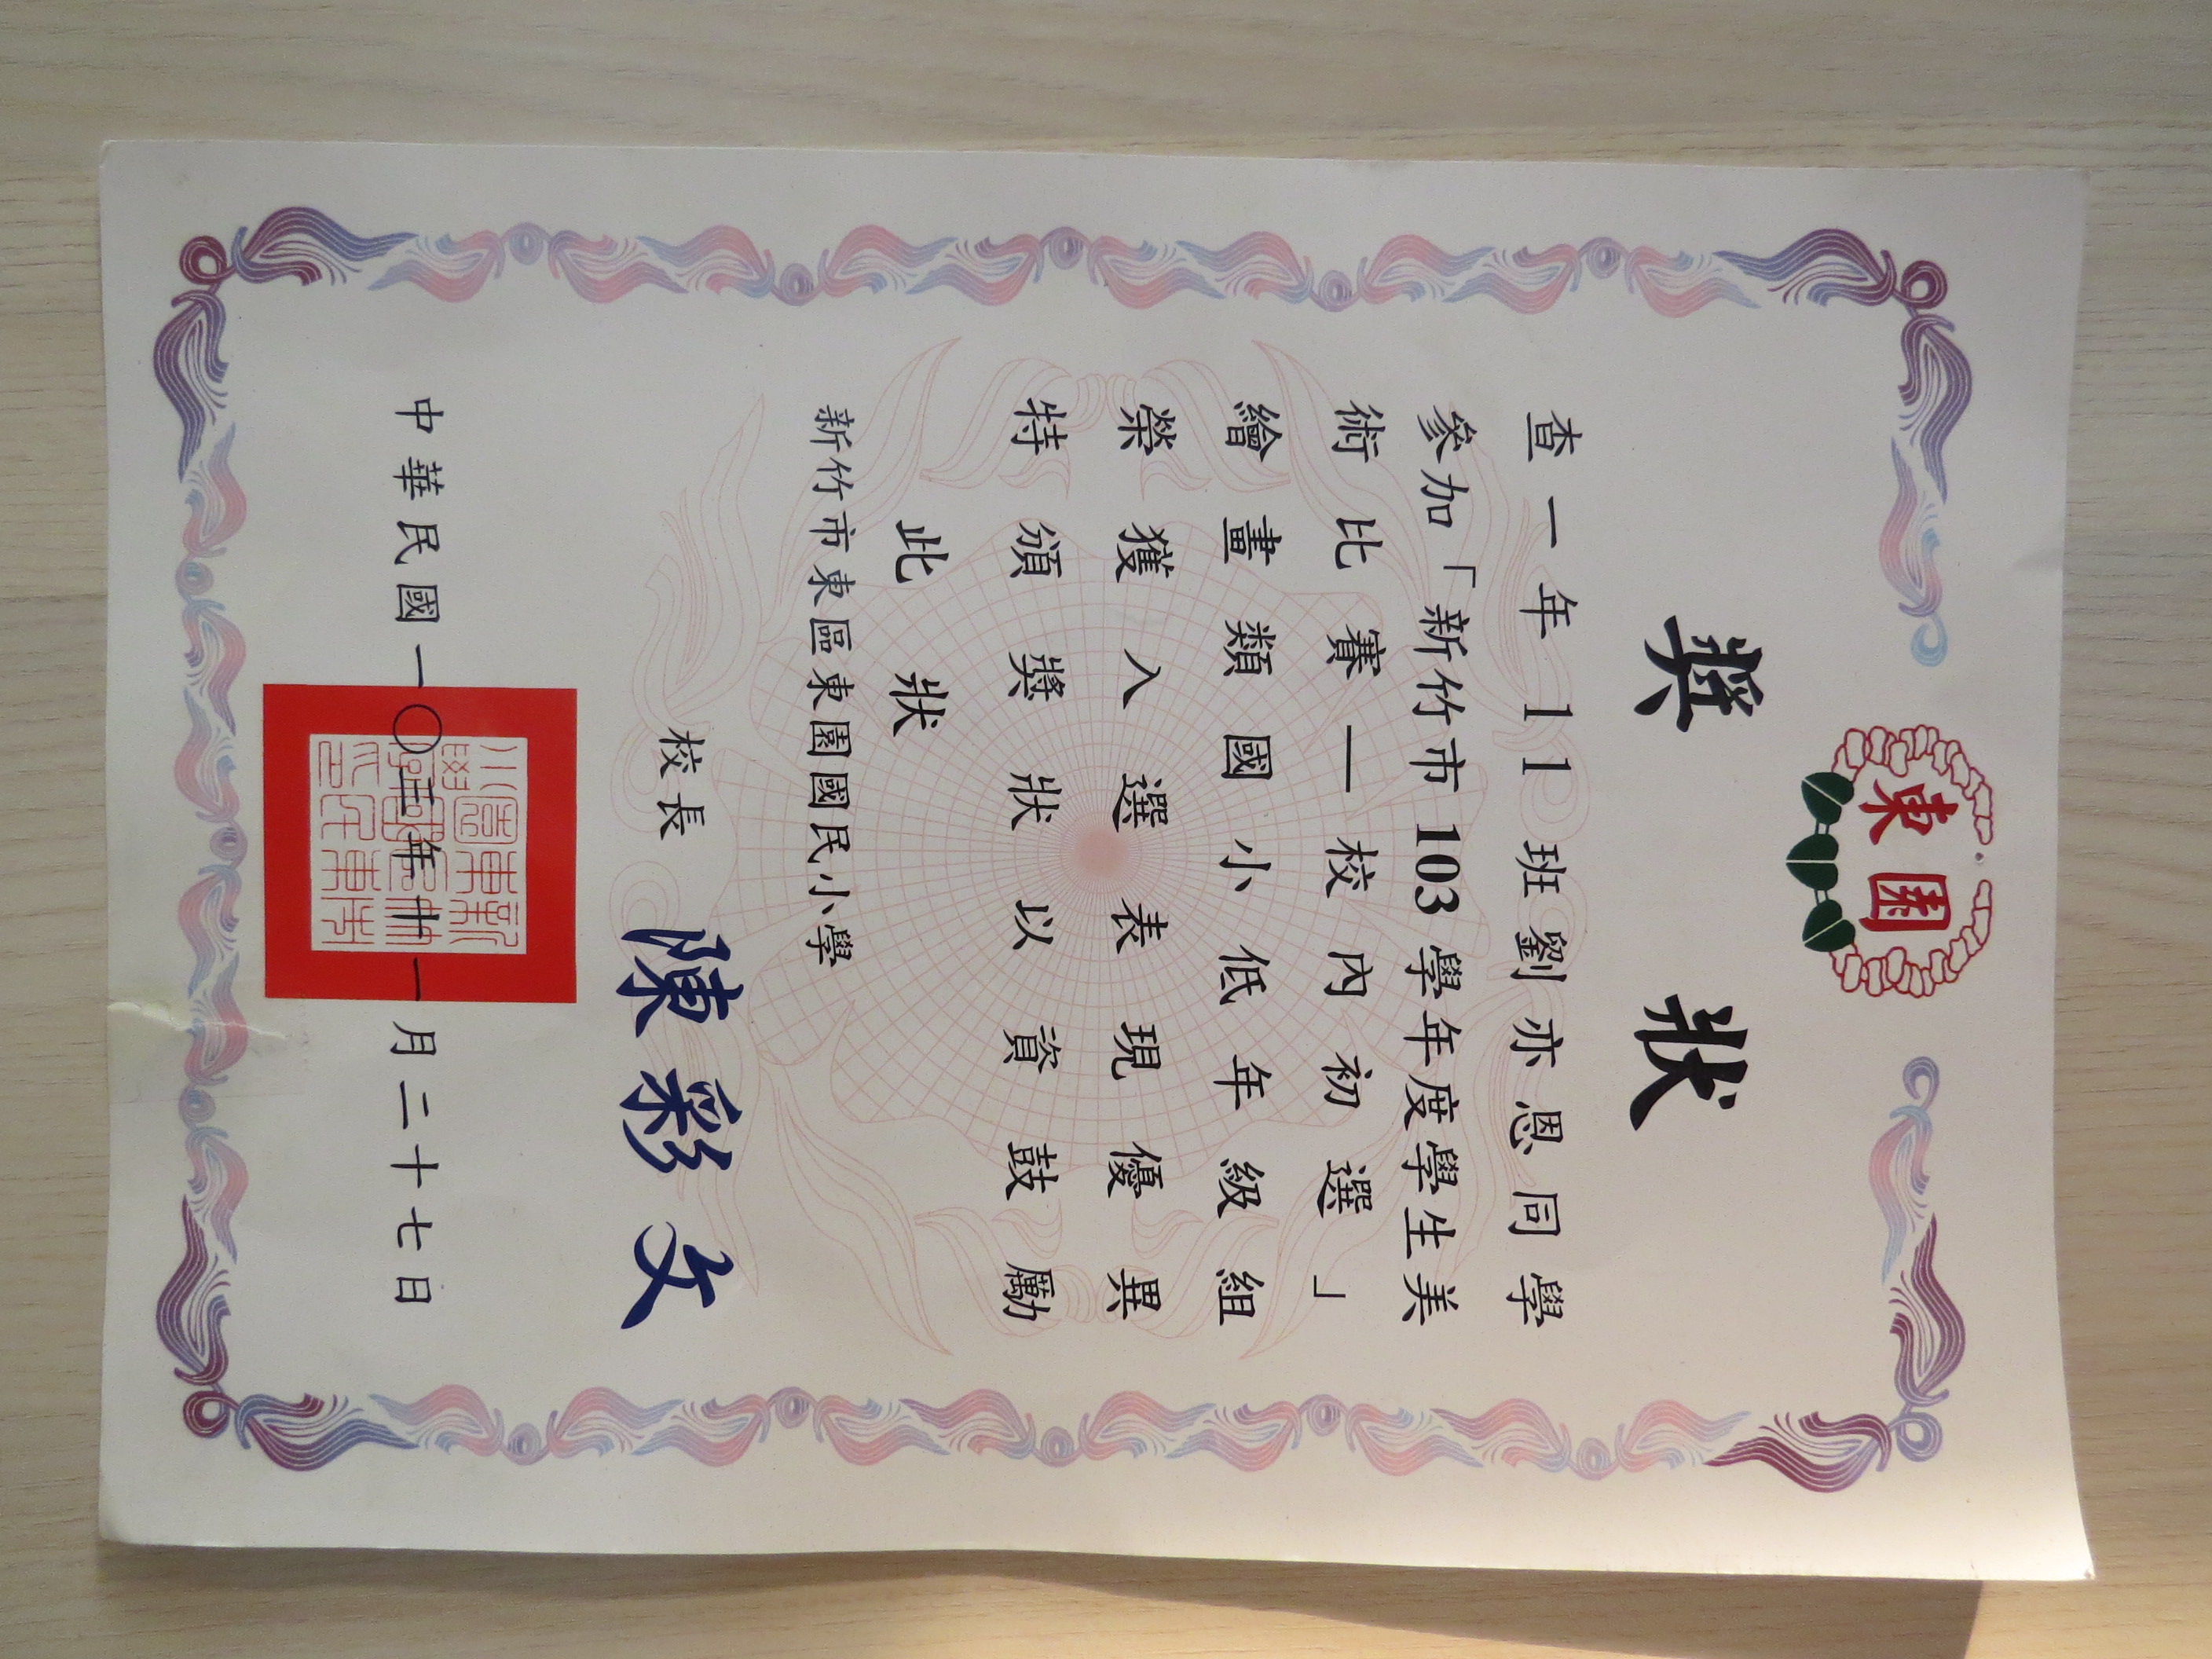 東園
獎狀
查一年11班劉亦恩同學
參加「新竹市103學年度學生美
術比賽—校內初選」
繪畫類國小低年級組
榮獲入選表現優異
特頒獎狀以資鼓勵
此狀
新竹市東區東園國民小學
校長 陳彩文
中華民國一〇三年十一月二十七日